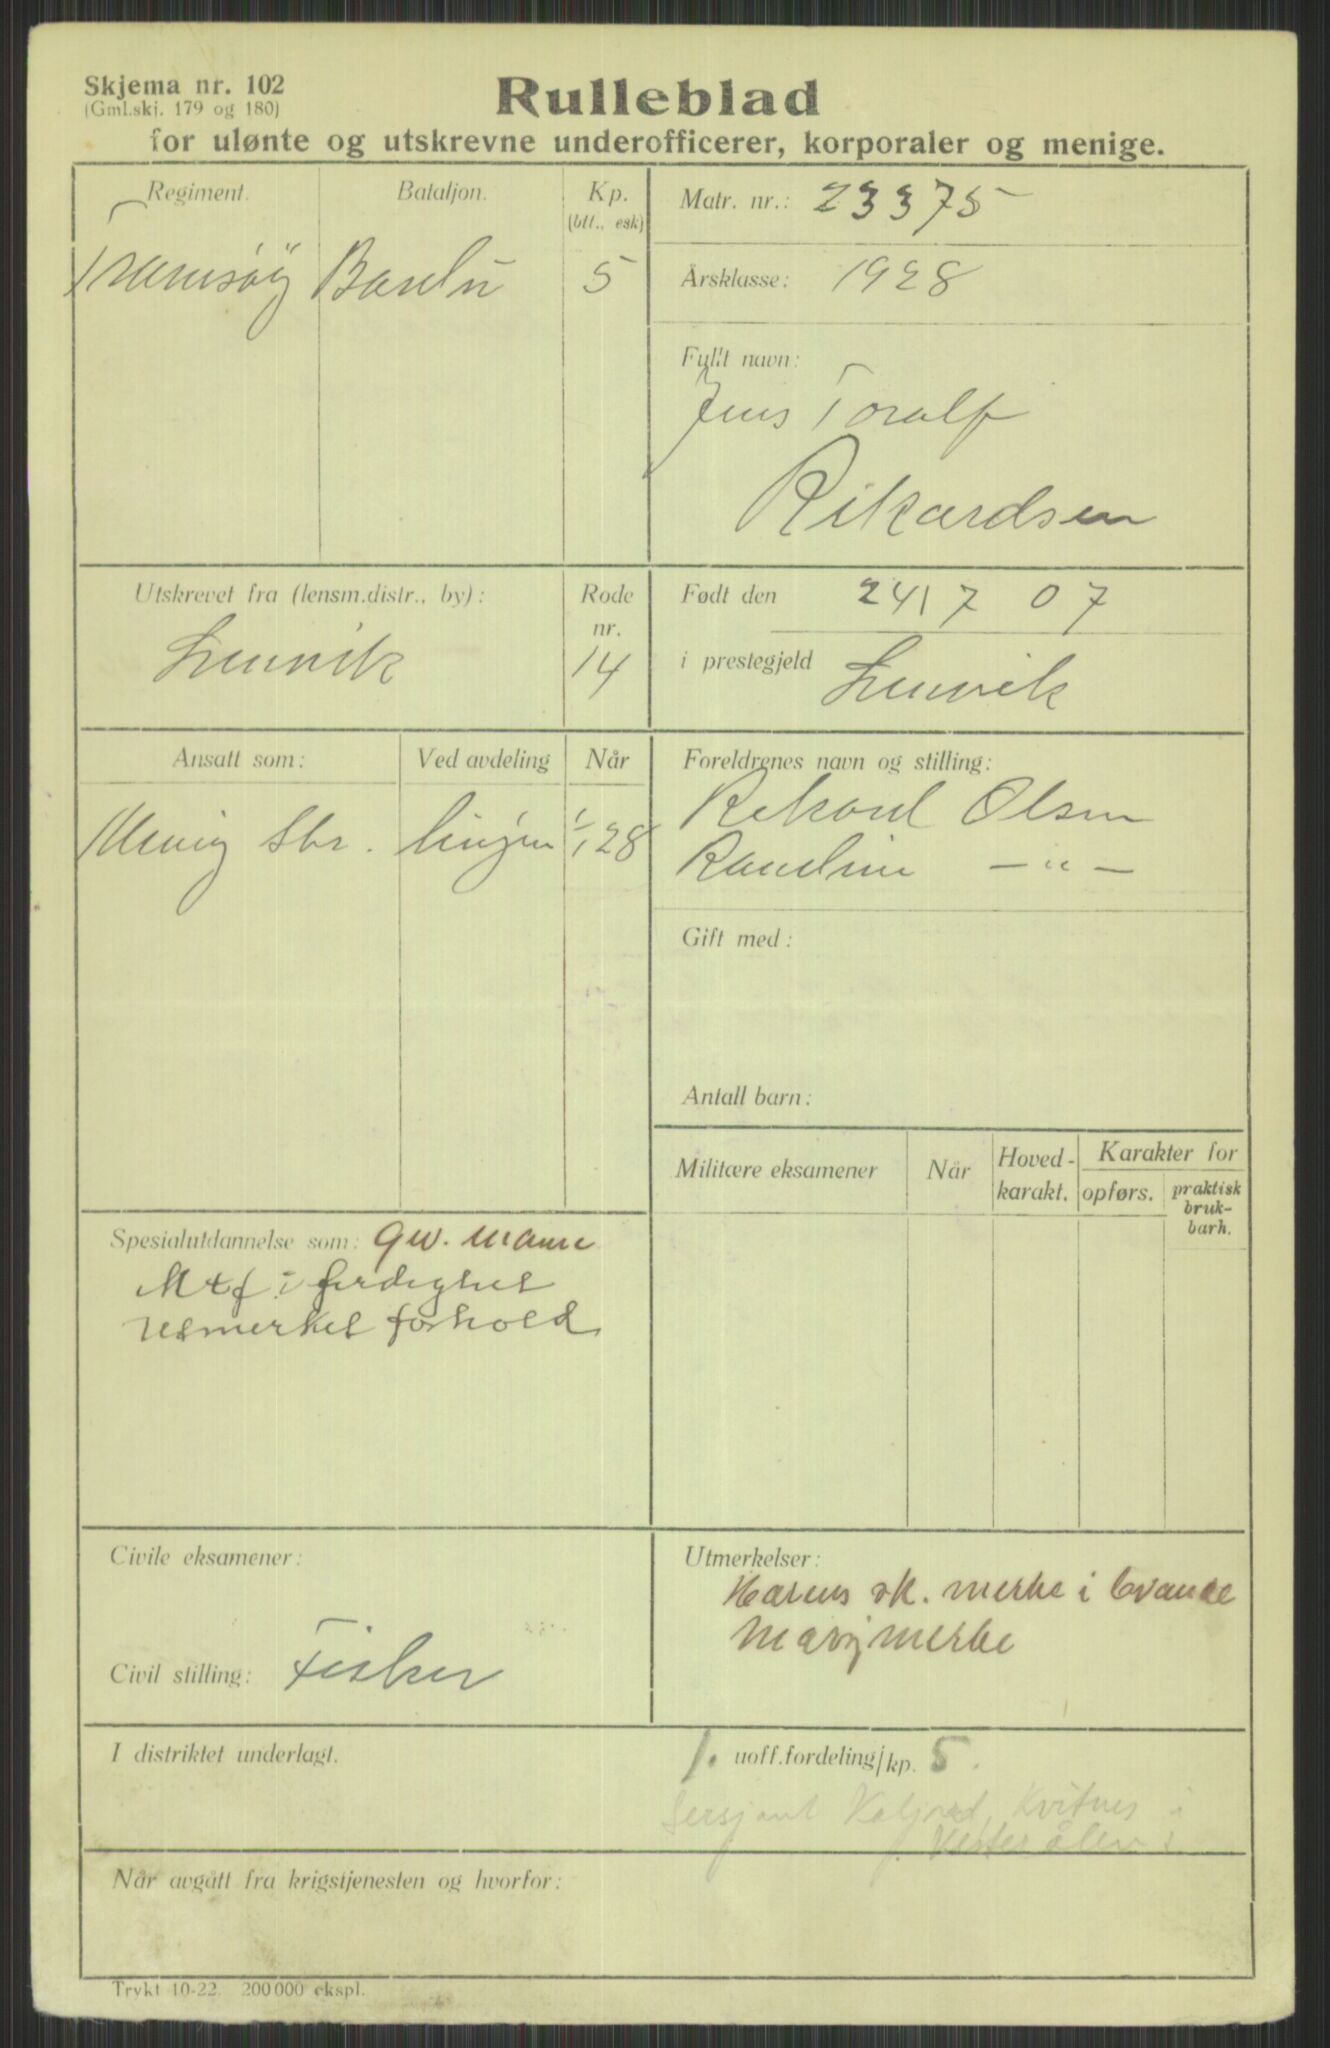 Skjema nr. 102
(Gml.skj. 179 og 180)
Rulleblad
for ulønte og utskrevne underofficerer, korporaler og menige.
Regiment.
Bataljon.
Kp.
(btt., esk)
Tromsø
5
Matr. nr.: 23375
Årsklasse: 1928
Fullt navn:
Jens Toralf
Rikardsen
Utskrevet fra (lensm.distr., by):
Lenvik
Rode
nr.
14
Født den 24/7 07
i prestegjeld Lenvik
Ansatt som:
Ved avdeling
Når
Menig
linjen
1/1 28
Foreldrenes navn og stilling:
Rikard Olsen
— " —
Gift med:
Antall barn:
Militære eksamener
Når
Hoved-
karakt.
Karakter for
opførs.
praktisk
bruk-
barh.
Spesialutdannelse som: Gev. mann
Mtf i ferdighet
Utmerket forhold
Civile eksamener:
Civil stilling: Fisker
Utmerkelser:
Hærens sk. merke i bronse
Marsjmerke
I distriktet underlagt.
1. uoff.fordeling/kp. 5.
Sersjant Kvitnes i
Vesterålen
Når avgått fra krigstjenesten og hvorfor:
Trykt 10-22. 200 000 ekspl.